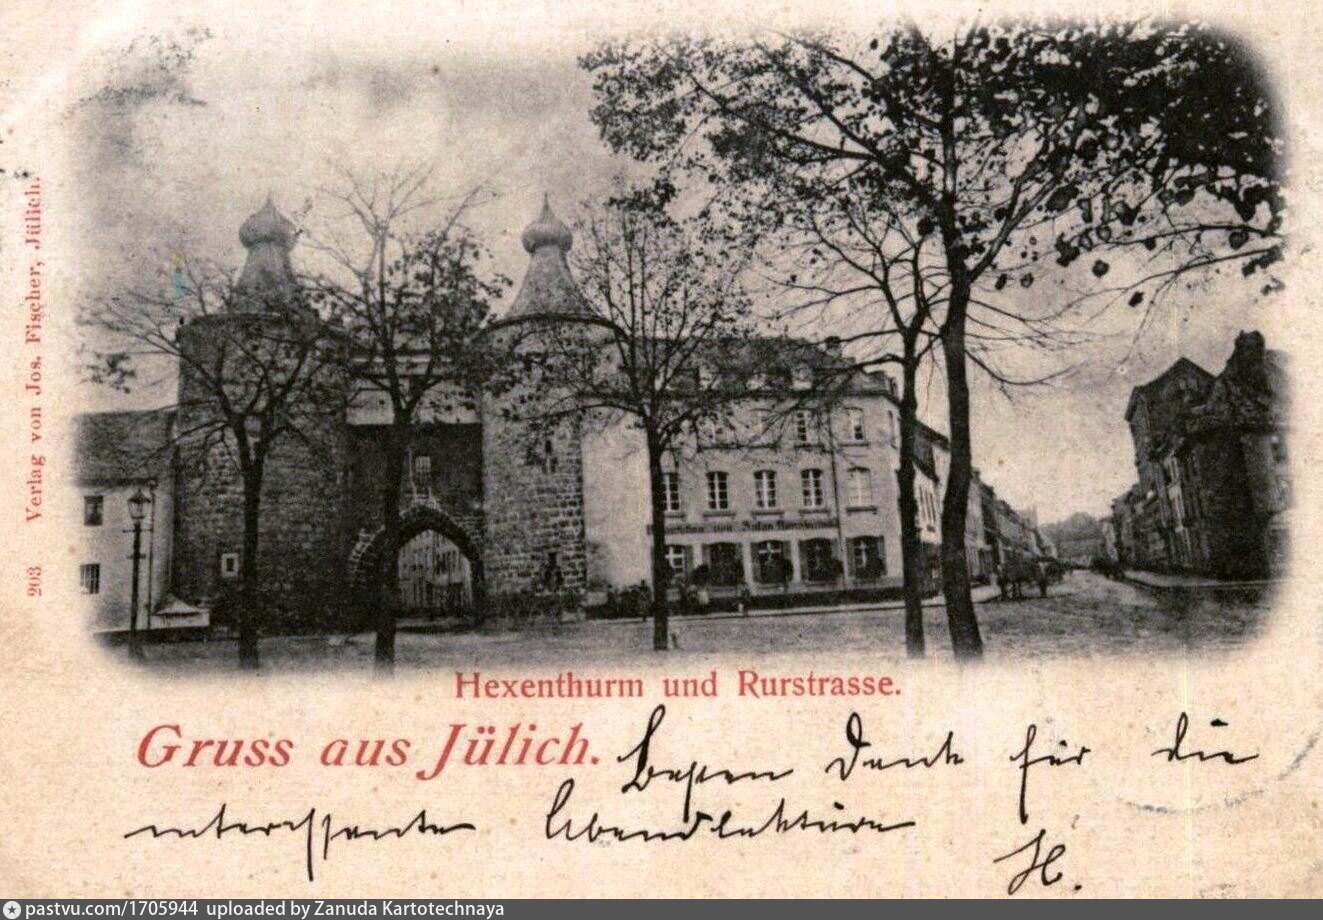 203 Verlag von Jos. Fischer, Jülich.
Hexenthurm und Rurstrasse.
Gruss aus Jülich. Besten Dank für die
interessante Abendlektüre
H.
pastvu.com/1705944 uploaded by Zanuda Kartotechnaya